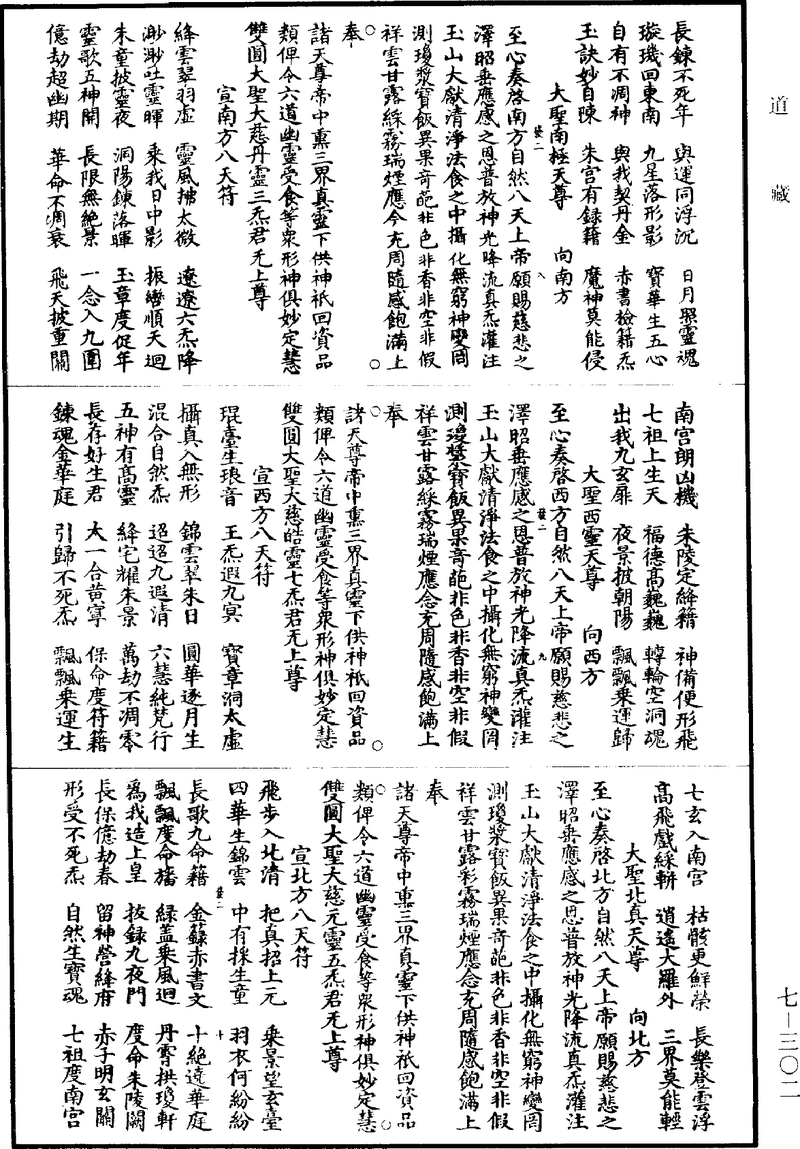 道藏
長鍊不死年　與運同浮沉　日月照靈魂
璇璣回東南　九星落形影　寶華生五心
自有不凋神　與我契丹金　赤書檢籍炁
玉訣妙自陳　朱宮有録籍　魔神莫能侵
大聖南極天尊　向南方
至心奏啓南方自然八天上帝願賜慈悲之
澤昭垂應感之恩普放神光降流真炁灌注
玉山大獻清淨法食之中攝化無窮神變罔
測瓊漿寶飯異果奇葩非色非香非空非假
祥雲甘露綵霧瑞煙應今充周隨感飽滿上
奉
諸天尊帝中熏三界真靈下供神祇回資品
類俾令六道幽靈受食等衆形神俱妙定慧
雙圓大聖大慈丹靈三炁君无上尊
宣南方八天符
絳雲翠羽虛　靈風拂太微　遼遼六炁降
渺渺吐靈暉　乘我日中影　振轡順天迴
朱童披靈夜　洞陽鍊落暉　玉章度促年
靈歌五神開　長限無絶景　一念入九圍
億劫超幽期　華命不凋衰　飛天披重關
南宮朗凶機　朱陵定絳籍　神備便形飛
七祖上生天　福德高巍巍　轉輪空洞魂
出我九玄扉　夜景披朝陽　飄飄乘運歸
大聖西靈天尊　向西方
至心奏啓西方自然八天上帝願賜慈悲之
澤昭垂應感之恩普放神光降流真炁灌注
玉山大獻清淨法食之中攝化無窮神變罔
測瓊漿寶飯異果奇葩非色非香非空非假
祥雲甘露綵霧瑞煙應念充周隨感飽滿上
奉
諸天尊帝中熏三界真靈下供神祇回資品
類俾令六道幽靈受食等衆形神俱妙定慧
雙圓大聖大慈皓靈七炁君无上尊
宣西方八天符
琨臺生琅音　王炁遐九冥　寶章洞太虛
攝真入無形　錦雲翠朱日　圓華逐月生
混合自然炁　迢迢九遐清　六慧純梵行
五神有高靈　絳宅耀朱景　萬劫不凋零
長存好生君　太一合黄寧　保命度符籍
鍊魂金華庭　引歸不死炁　飄飄乘運生
七玄入南宮　枯骸更鮮榮　長樂登雲浮
高飛戲綵軿　逍遙大羅外　三界莫能輕
大聖北真天尊　向北方
至心奏啓北方自然八天上帝願賜慈悲之
澤昭垂應感之恩普放神光降流真炁灌注
玉山大獻清淨法食之中攝化無窮神變罔
測瓊漿寶飯異果奇葩非色非香非空非假
祥雲甘露彩霧瑞煙應念充周隨感飽滿上
奉
諸天尊帝中熏三界真靈下供神祇回資品
類俾令六道幽靈受食等衆形神俱妙定慧
雙圓大聖大慈元靈五炁君无上尊
宣北方八天符
飛步入北清　把真招上元　乘景望玄臺
四華生錦雲　中有採生童　羽衣何紛紛
長歌九命籍　金籙赤書文　十絶遶華庭
飄飄度命旛　緑蓋乘風迴　丹霄拱瓊軒
為我造上皇　拔録九夜門　度命朱陵闕
長保億劫春　留神營絳府　赤子明玄關
形受不死炁　自然生寶魂　七祖度南宮
七－三〇二